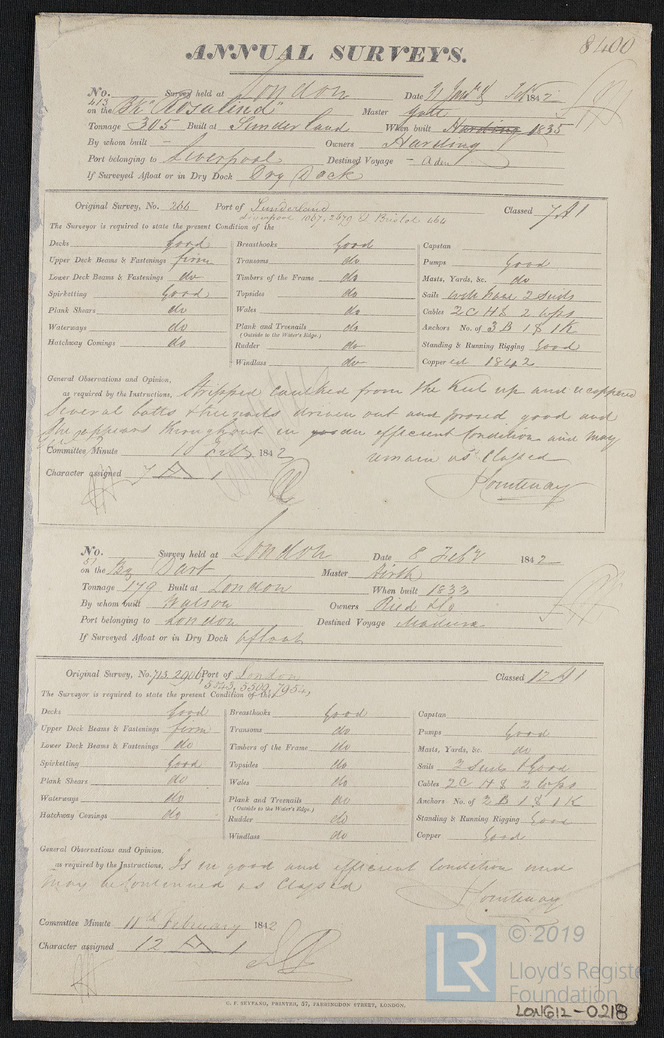 8400
ANNUAL SURVEYS.
No. 413 Survey held at London Date 31 Jany & Feby 1842
on the Bk "Rosalind" Master
Tonnage 305 Built at Sunderland When built Harding 1835
By whom built - Owners Harding
Port belonging to Liverpool Destined Voyage - Aden
If Surveyed Afloat or in Dry Dock Dry Dock
Original Survey, No. 266 Port of Sunderland Classed 7 A 1
Liverpool 1067, 2679 & Bristol 464
The Surveyor is required to state the present Condition of the
Decks Good Breasthooks Good Capstan
Upper Deck Beams & Fastenings firm Transoms do Pumps Good
Lower Deck Beams & Fastenings do Timbers of the Frame do Masts, Yards, &c. do
Spirketting Good Topsides do Sails 2 Suits
Plank Shears do Wales do Cables 2 C H & 2 Wps
Waterways do Plank and Treenails do Anchors No. of 3 B 1 S 1 K
(Outside to the Water's Edge.)
Hatchway Comings do Rudder do Standing & Running Rigging Good
Windlass do Coppered 1842
General Observations and Opinion,
as required by the Instructions, Stripped caulked from the Keel up and recoppered
Several bolts & treenails driven out and proved good and
She appears throughout in efficient Condition and may
remain as Classed
Committee Minute 1842
Character assigned 7 A 1
Courtenay
No. 51 Survey held at London Date 8 Feby 1842
on the Bg Dart Master Firth
Tonnage 179 Built at London When built 1833
By whom built Watson Owners Ried & Co
Port belonging to London Destined Voyage Madeira
If Surveyed Afloat or in Dry Dock Afloat
Original Survey, No. 713, 2906, Port of London Classed 12 A 1
5343, 5509, 7954,
The Surveyor is required to state the present Condition of the
Decks Good Breasthooks Good Capstan
Upper Deck Beams & Fastenings firm Transoms do Pumps Good
Lower Deck Beams & Fastenings do Timbers of the Frame do Masts, Yards, &c. do
Spirketting Good Topsides do Sails 2 Suits Good
Plank Shears do Wales do Cables 2 C H & 2 Wps
Waterways do Plank and Treenails do Anchors No. of 2 B 1 S 1 K
(Outside to the Water's Edge.)
Hatchway Comings do Rudder do Standing & Running Rigging Good
Windlass do Copper Good
General Observations and Opinion,
as required by the Instructions, Is in good and efficient Condition and
may be Continued as Classed
Courtenay
Committee Minute 11th February 1842
Character assigned 12 A 1
G. F. SEYFANG, PRINTER, 57, FARRINGDON STREET, LONDON.
LR
© 2019
Lloyd's Register
Foundation
LON612-0218